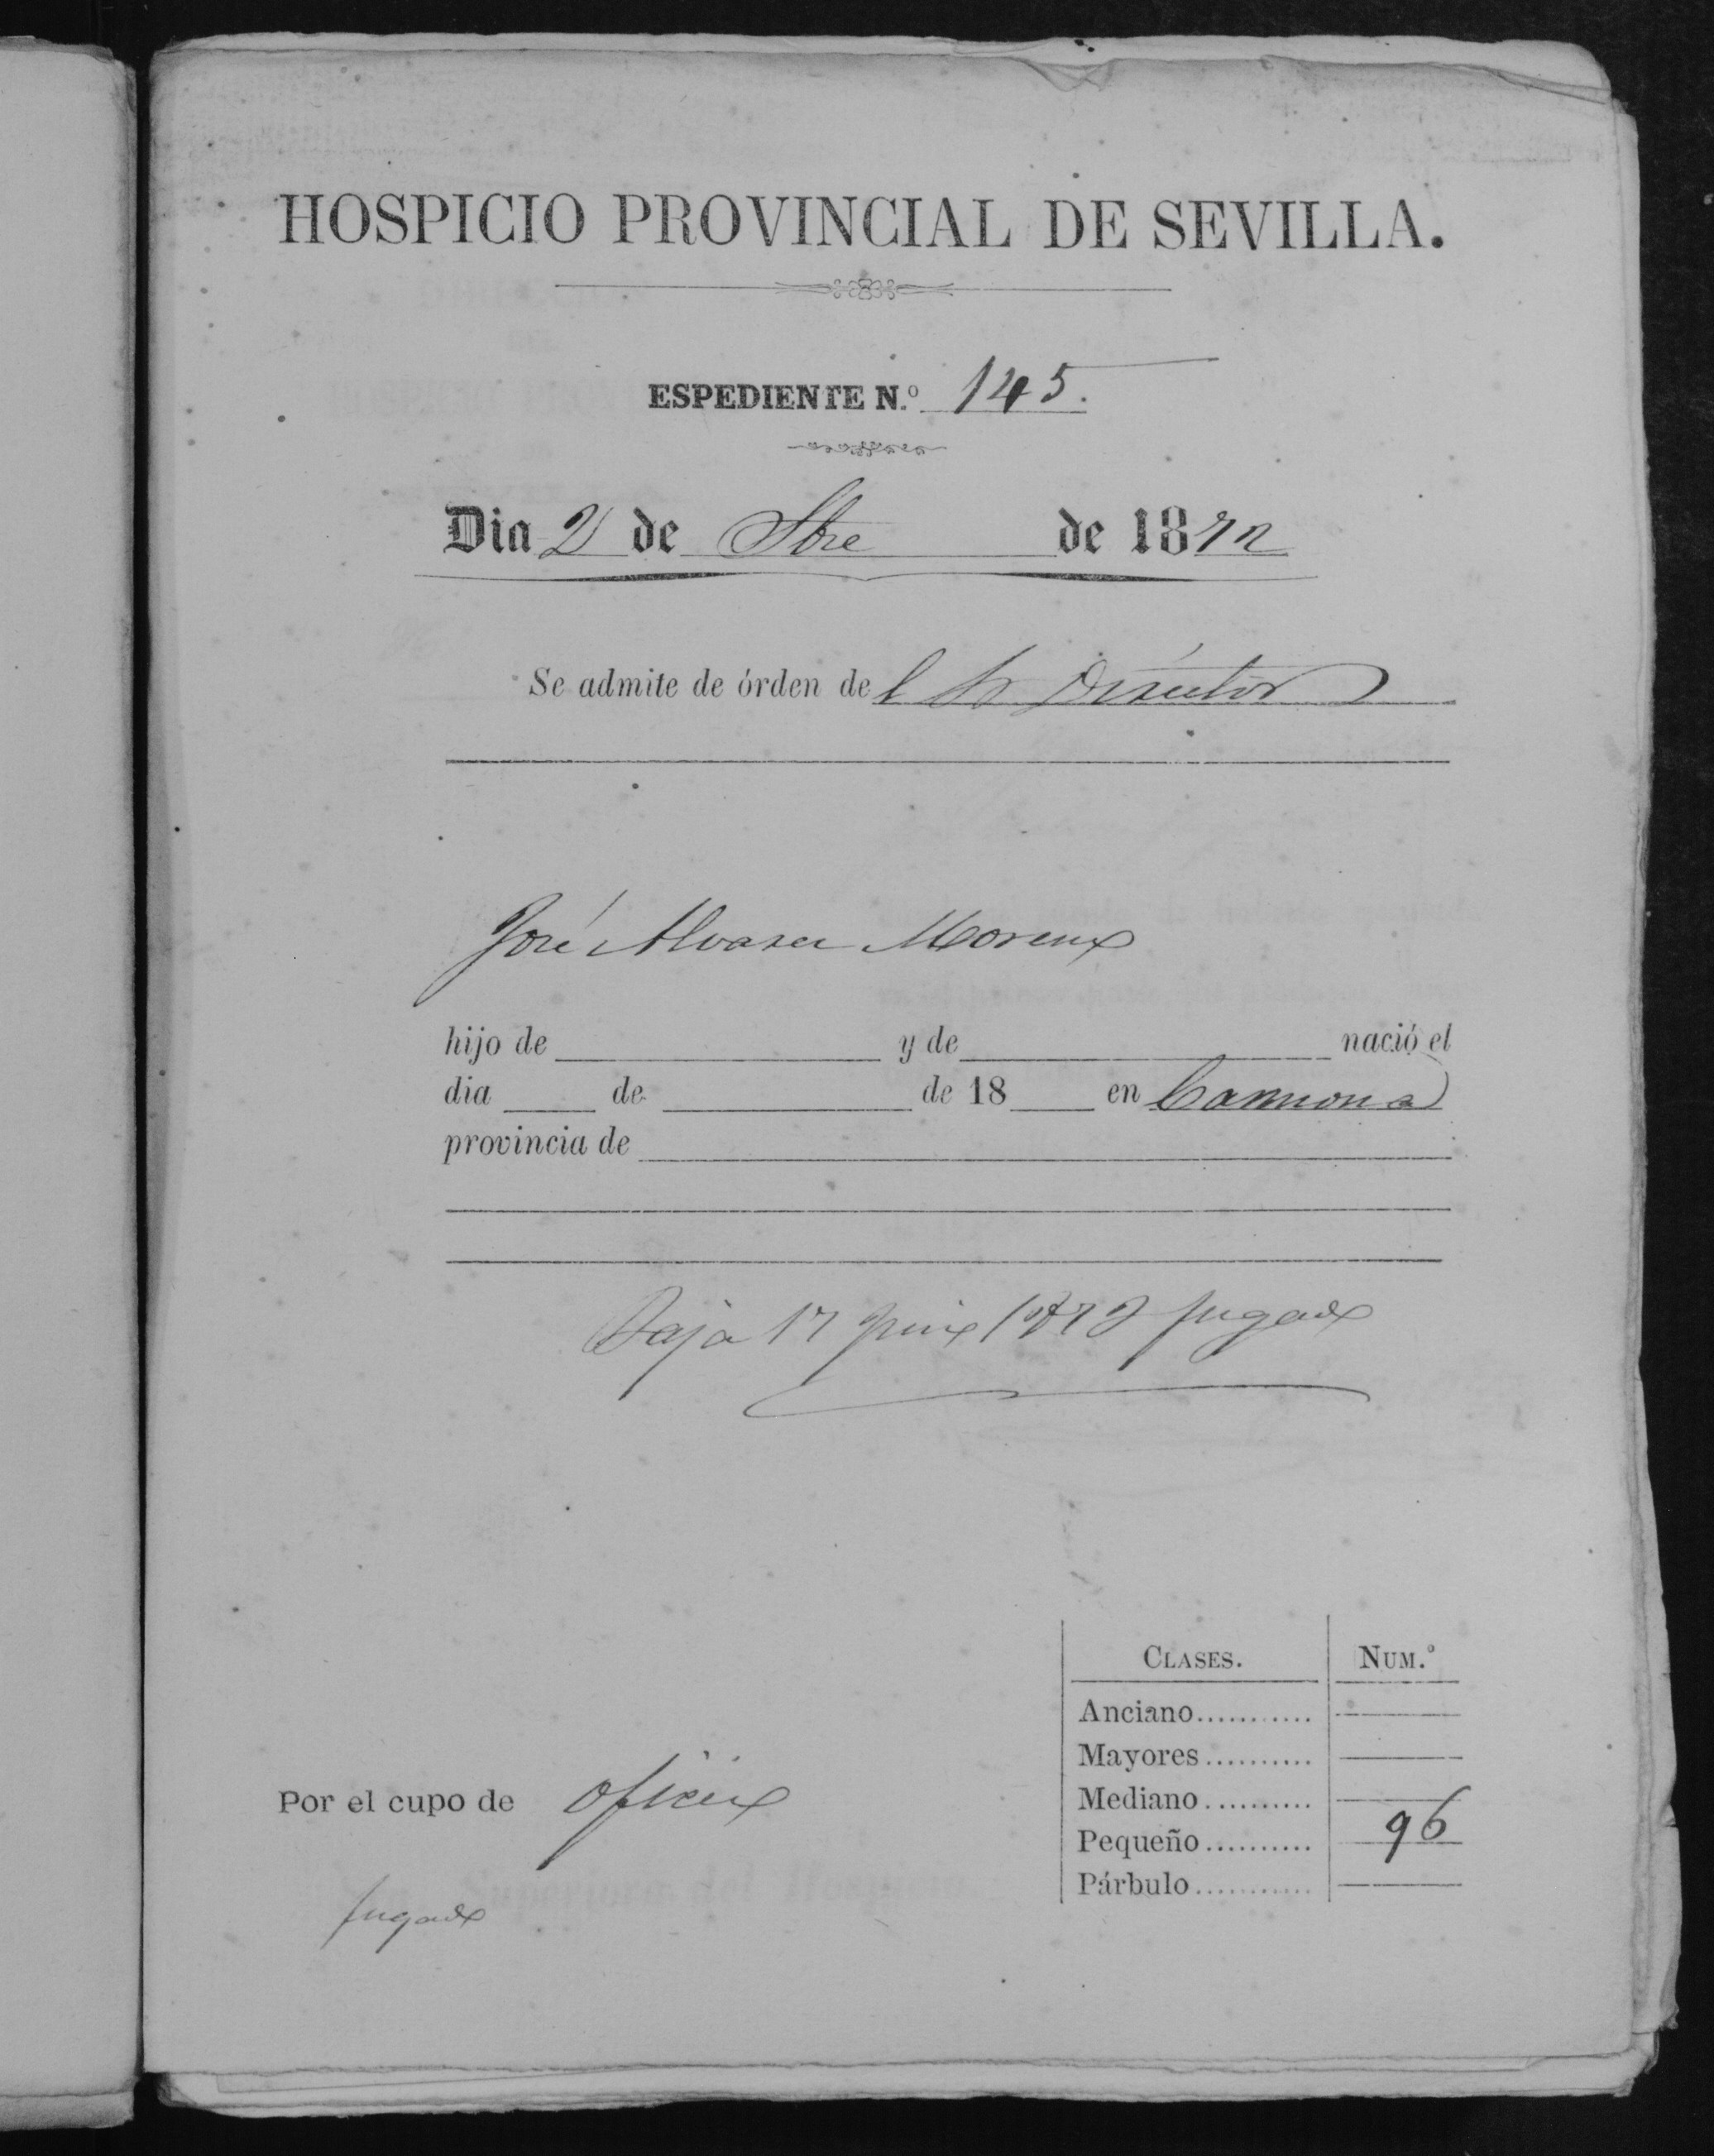 HOSPICIO PROVINCIAL DE SEVILLA.
ESPEDIENTE N.º 145.
Dia 2 de Sbre de 1872
Se admite de órden de l Sr Director
José Alvarez Moreno
hijo de y de nació el
dia de de 18 en Carmona
provincia de
Baja 17 Junio 1873 fugado
CLASES. NUM.º
Anciano...........
Mayores..........
Mediano..........
Pequeño.......... 96
Párbulo...........
Por el cupo de oficio
fugado